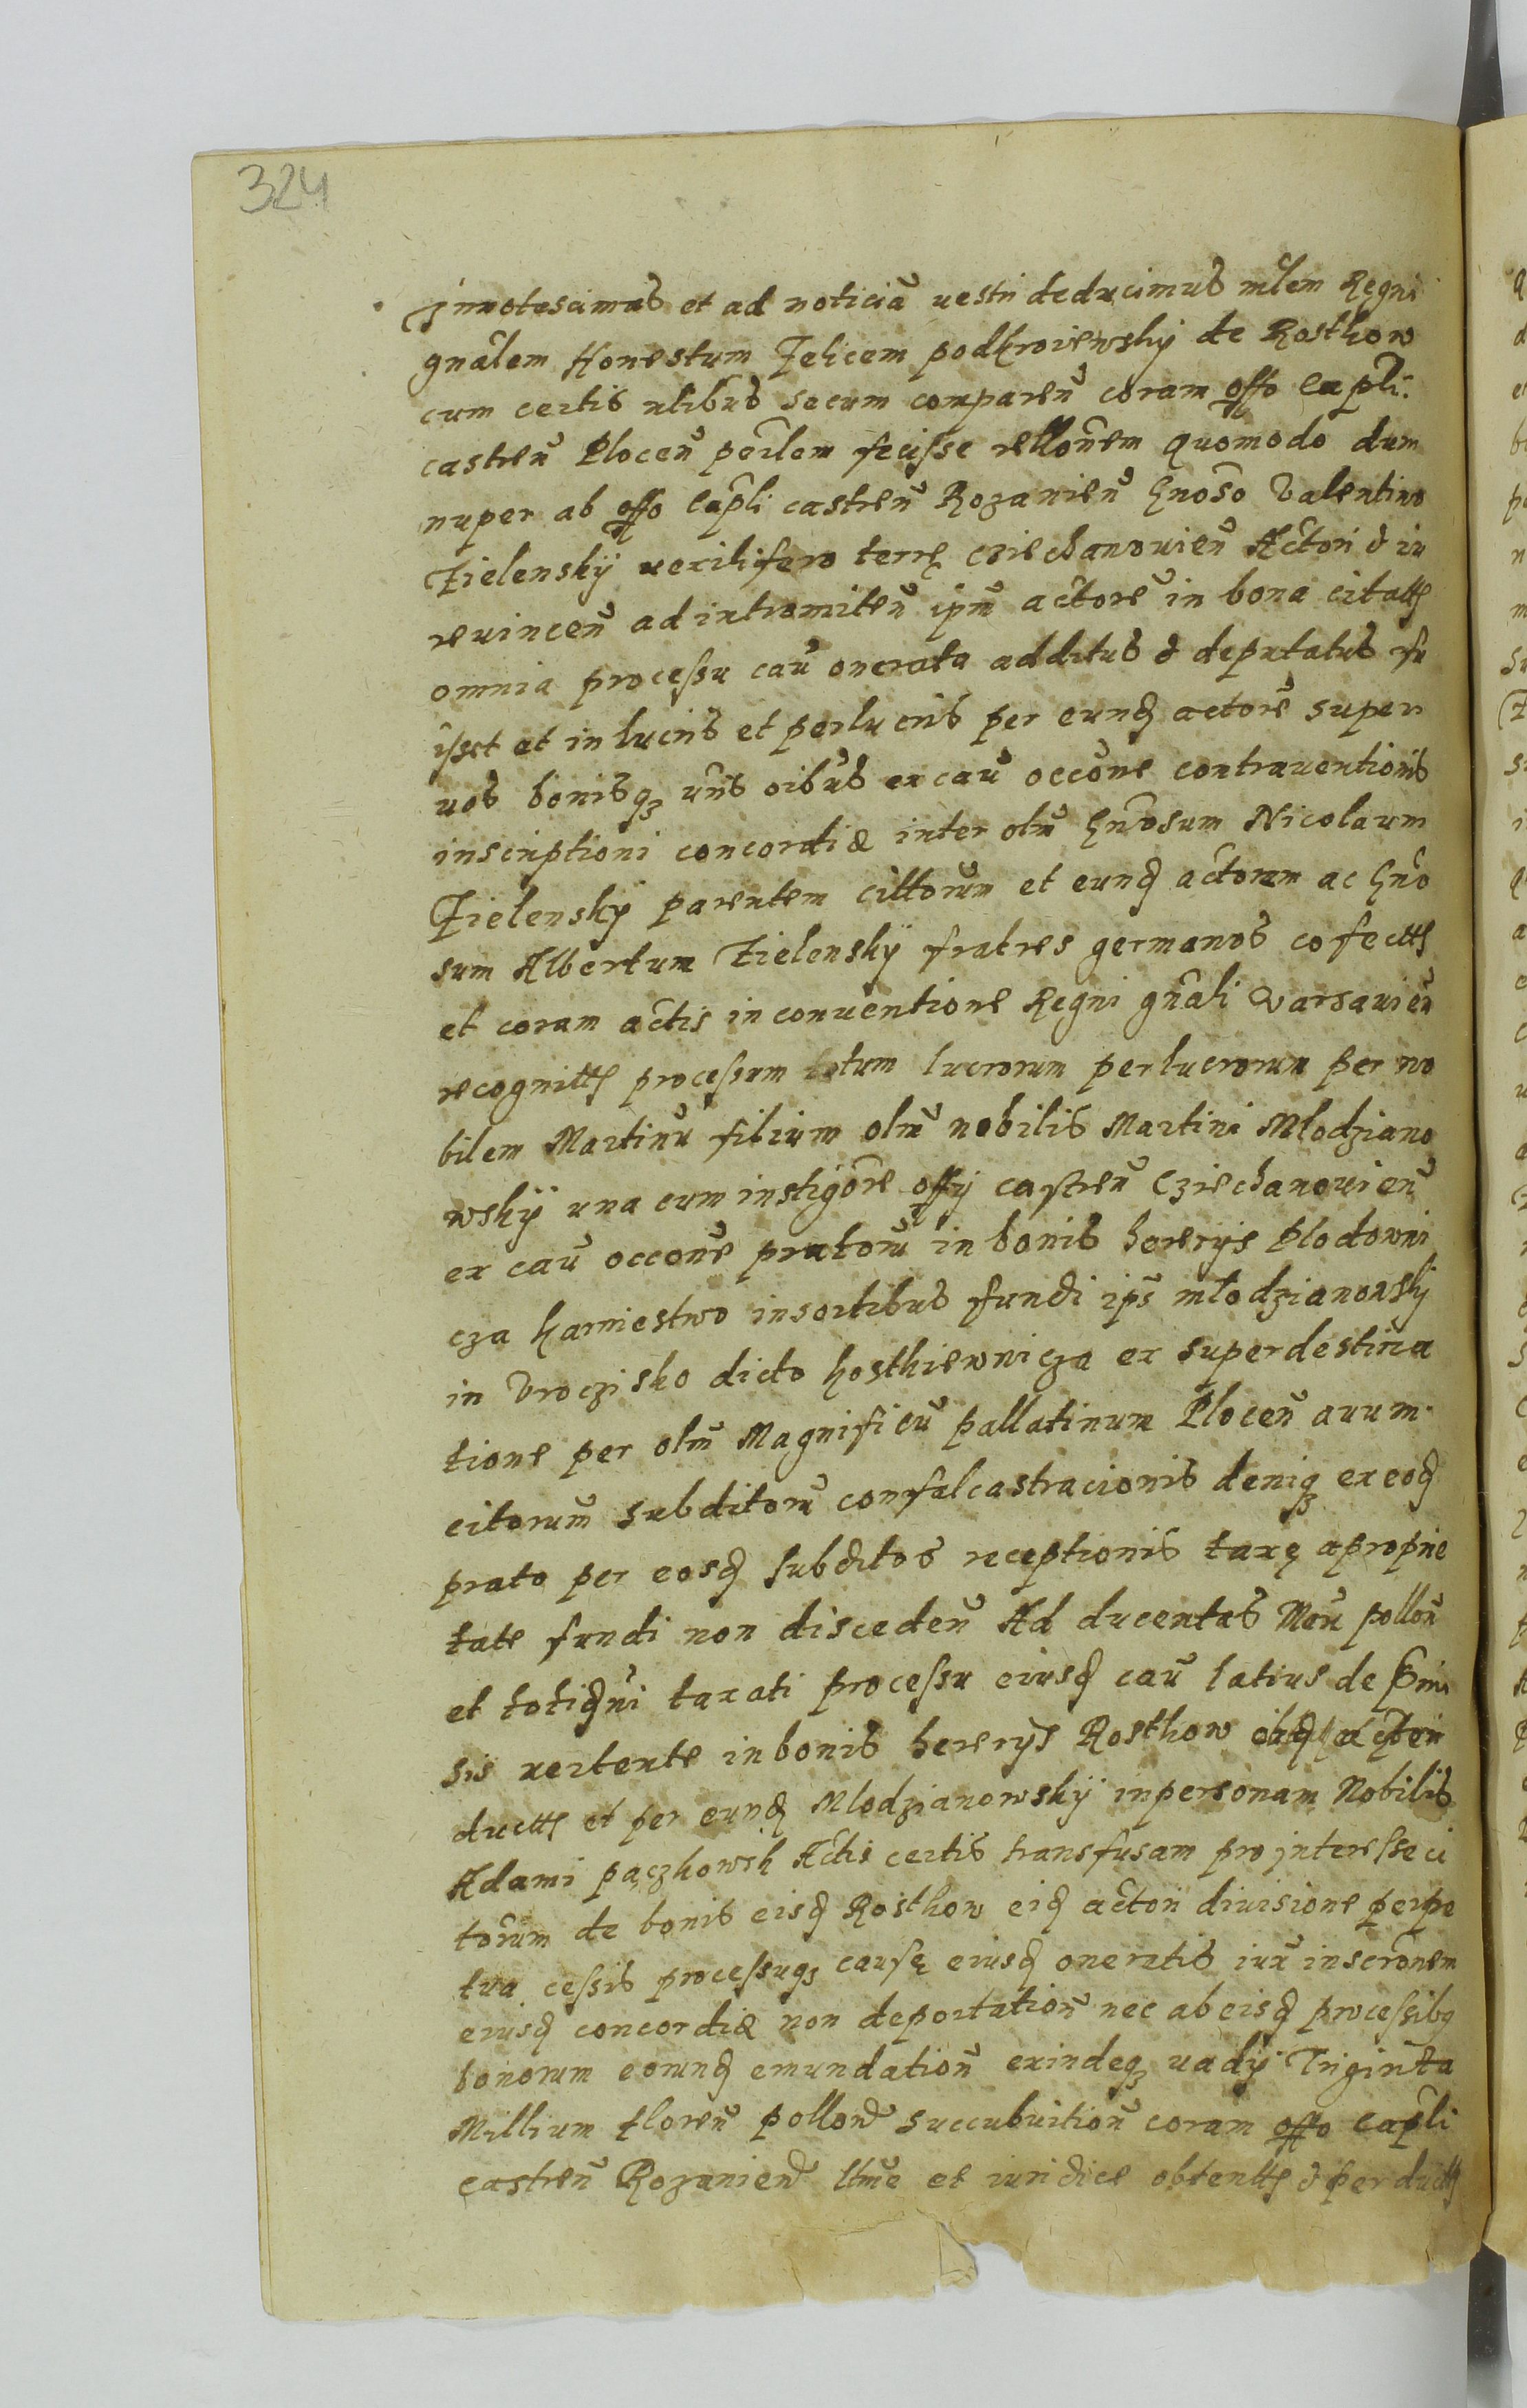 324
Innotescimus et ad noticiā vestri deducimus mlem Regni
gnâlem Honestum Felicem podkrviewskÿ de Rosthow
cum certis nlibus secum comparen̄ coram offo Capli.
castren̄ Plocen̄ perlem fecisse rellonem quomodo dum
nuper ab offo Capli castren̄ Rozanien̄ Gnoso Valentino
Zielenskÿ vexilifero terrę cziechanovien̄ Actori & in
revincen̄ ad intromiten̄ ipm̄ actore in bona citatt
omnia processu cau̅ onerata additus & deputatus fu
isset et in lucris et perlucris per eund actorē super
vos bonisqz vris oibus ex cau̅ occone contraventionis
inscriptioni concordiæ inter olm̄ Gnosum Nicolaum
Zielenskÿ parentem cittorum et eund actorem ac Gno
sum Albertum Zielenskÿ fratres germanos cofectt
et coram actis in conventione Regni gnâli Varsavien̄
recognitt processum totum lucrorum perlucrorum per no
bilem Martinū filium olm̄ nobilis Martini Mlodziano
wskÿ una cum instigore offÿ castren̄ Cziechanovien̄
ex cau̅ occone pratorū in bonis hererÿs Plodowni
cza harniestwo in sortibus fundi ips̄ mlodzianowskÿ
in Vroczisko dicto hosthiewnicza ex superdestina
tione per olm̄ Magnificū pallatinum Plocen̄ avum
citorum subditorū confalcastracionis deniqz ex eod
prato per eosd subditos receptionis taxę a proprie
tate fundi non disceden̄ Ad ducentas Mon̄ pollon̄
et totidm̄ taxati processu eiusd cau̅ latius de prmi
sis vertente in bonis hererÿs Rosthow
ductt et per eund Mlodzianowskÿ in personam Nobilis
Adami pączkowsk Actis certis transfusam pro interesse ci
torum de bonis eisd Rosthow eid actori divisione perpe
tua cessis processuqz causę eiusd oneratis iux̄ inscronem
eiusd concordiæ non deportation̄ nec ab eisd processibq
bonorum eorund emundation̄ exindeqz vadÿ Triginta
Millium floren̄ pollon̄ succubuition̄ coram offo Capli
castren̄ Rozanien̄ ltme et iuridice obtentt & perductt